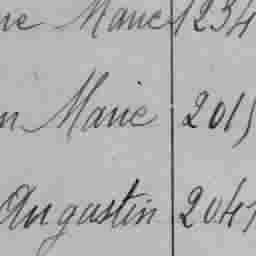 ne Marie 1234
n Marie 2015
Augustin 2041